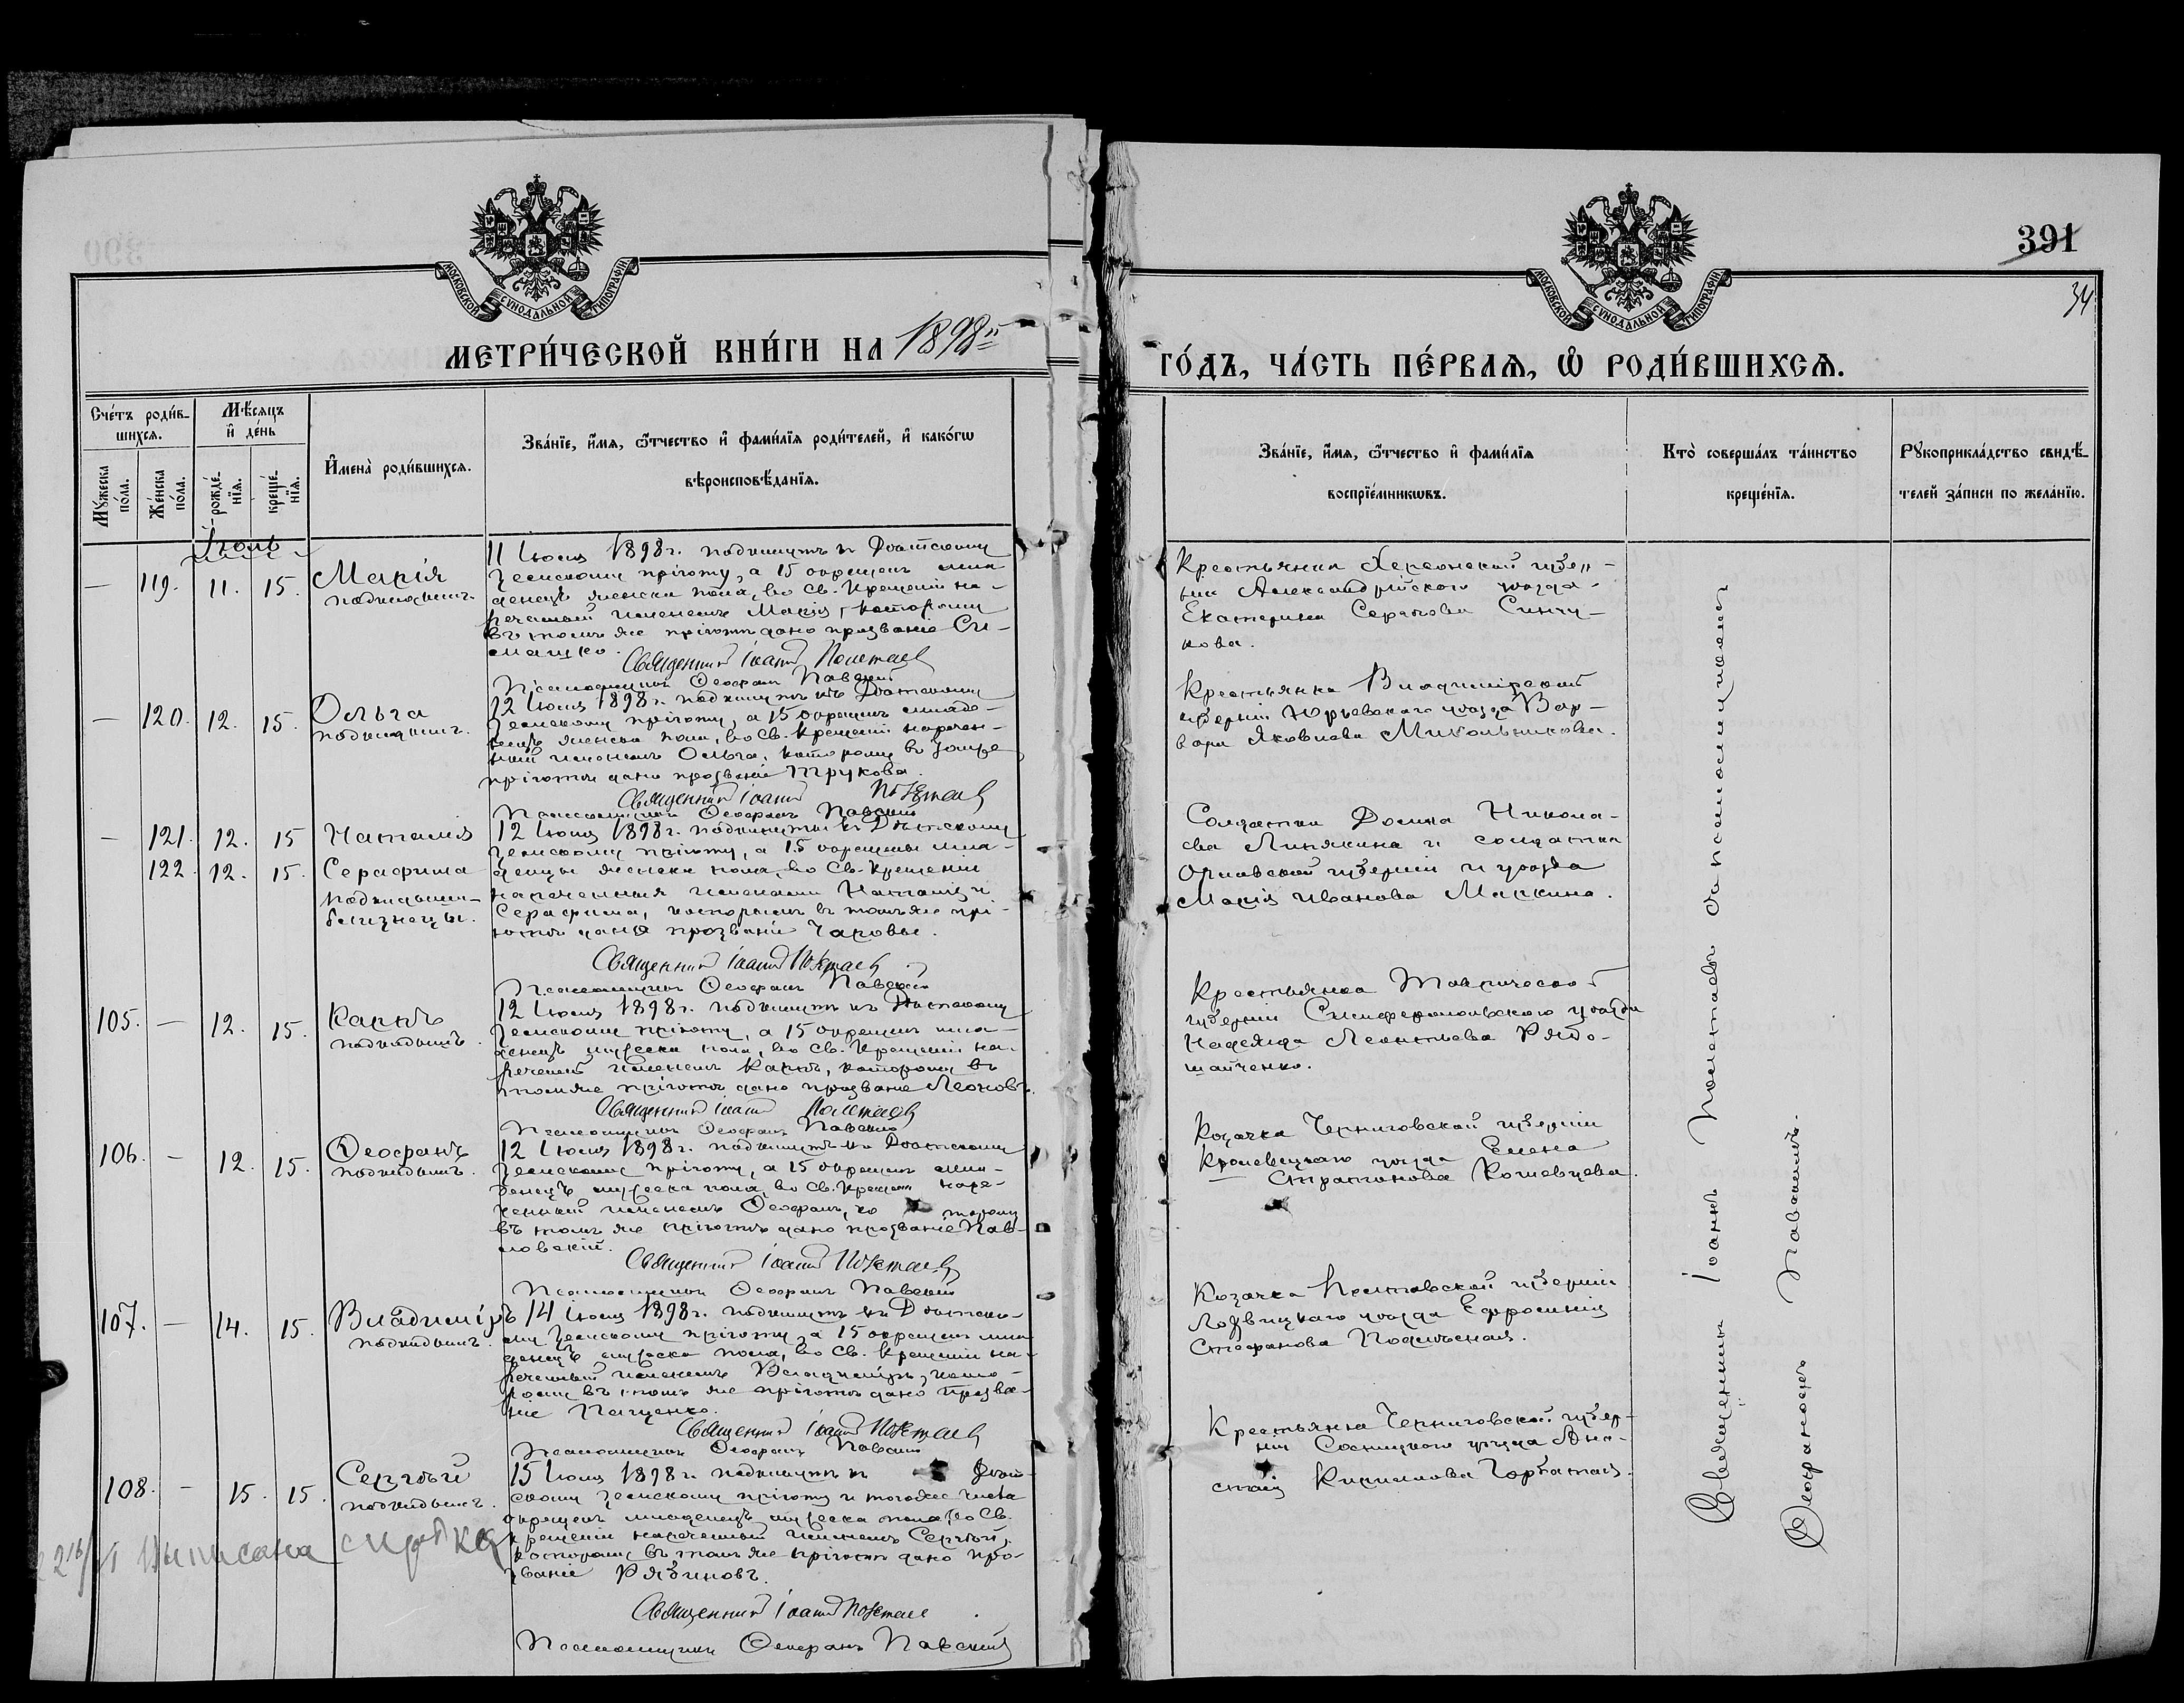 391
34
МОСКОВСКОЙ СѴНОДАЛЬНОЙ ТИПОГРАФІИ
МОСКОВСКОЙ СѴНОДАЛЬНОЙ ТИПОГРАФІИ
МЕТРИ́ЧЕСКОЙ КНИ́ГИ НА 1898й
ГО́ДЪ, ЧА́СТЬ ПЕ́РВАѦ, Ѡ РОДИ́ВШИХСѦ.
Сче́тъ роди́в-
шихсѧ.
Мꙋ́жеска по́ла.
Же́нска по́ла.
Мѣ́сѧцъ
и де́нь
рожде́-
нїѧ.
креще́-
нїѧ.
И҆мена̀ роди́вшихсѧ.
Зва́нїе, и҆́мѧ, ѻ҆́тчество и҆ фами́лїѧ роди́телей, и҆ како́гѡ
вѣроисповѣ́данїѧ.
Зва́нїе, и҆́мѧ, ѻ҆́тчество и҆ фами́лїѧ
воспрїе́мникѡвъ.
Кто̀ соверша́лъ та́инство
креще́нїѧ.
Рꙋкоприкла́дство свидѣ́-
телей за́писи по жела́нїю.
Іюнь
— 119. 11. 15. Марія
подкидышъ.
11 Іюня 1898 г. подкинутъ къ Дѣтскому
Земскому пріюту, а 15 окрещен мла
денецъ женска пола, во Св. Крещеніи на-
реченный именемъ Марія, которому
въ томъ же пріютѣ дано прозваніе Си-
машко.
Священникъ Іоаннъ Полетаевъ
Псаломщикъ Ѳеофанъ Павскій
Крестьянка Херсонской губер-
ніи Александрійскаго уѣзда
Екатерина Серапова Синчу-
кова.
— 120. 12. 15. Ольга
подкидышъ.
12 Іюня 1898 г. подкинутъ къ Дѣтскому
Земскому пріюту, а 15 окрещенъ младе-
нецъ женска пола, во Св. Крещеніи наречен-
ный именемъ Ольга, которому въ томъ же
пріютѣ дано прозваніе Трукова.
Священникъ Іоаннъ Полетаевъ
Псаломщикъ Ѳеофанъ Павскій
Крестьянка Владимірской
губерніи Юрьевскаго уѣзда Вар-
вара Яковлева Микольникова.
— 121. 12. 15 Наталія
122. 12. 15. Серафима
подкидыши-
близнецы.
12 Іюня 1898 г. подкинуты къ Дѣтскому
Земскому пріюту, а 15 окрещены мла-
денцы женска пола, во Св. Крещеніи
нареченныя именами Наталія и
Серафима, которымъ въ томъ же прі-
ютѣ дано прозваніе Чаровы.
Священникъ Іоаннъ Полетаевъ
Псаломщикъ Ѳеофанъ Павскій
Солдатка Домна Никола-
ева Липякина и солдатка
Орловской губерніи и уѣзда
Марія Иванова Маркина.
105. — 12. 15. Карпъ
подкидышъ.
12 Іюня 1898 г. подкинутъ къ Дѣтскому
Земскому пріюту, а 15 окрещенъ мла-
денецъ мужеска пола, во Св. Крещеніи на-
реченный именемъ Карпъ, которому въ
томъ же пріютѣ дано прозваніе Леоновъ.
Священникъ Іоаннъ Полетаевъ
Псаломщикъ Ѳеофанъ Павскій
Крестьянка Таврической
губерніи Симферопольскаго уѣзда
Надежда Леонтьева Рябо-
шапченко.
106. — 12. 15. Ѳеофанъ
подкидышъ.
12 Іюня 1898 г. подкинутъ къ Дѣтскому
Земскому пріюту, а 15 окрещенъ мла-
денецъ мужеска пола, во Св. Крещеніи наре-
ченный именемъ Ѳеофанъ, ко торому
въ томъ же пріютѣ дано прозваніе Пав-
ловскій.
Священникъ Іоаннъ Полетаевъ
Псаломщикъ Ѳеофанъ Павскій
Козачка Черниговской губерніи
Кролевецкаго уѣзда Елена
Стратонова Кошевцева.
107. — 14. 15. Владиміръ
подкидышъ.
14 Іюня 1898 г. подкинутъ къ Дѣтско-
му Земскому пріюту, а 15 окрещенъ мла
денецъ мужеска пола, во Св. Крещеніи на-
реченный именемъ Владиміръ, кото-
рому въ томъ же пріютѣ дано прозва-
ніе Пащенко.
Священникъ Іоаннъ Полетаевъ
Псаломщикъ Ѳеофанъ Павскій
Козачка Полтавской губерніи
Лохвицкаго уѣзда Ефросинія
Стефанова
108. — 15. 15. Сергѣй
подкидышъ.
15 Іюня 1898 г. подкинутъ къ Дѣт-
скому Земскому пріюту и того же числа
окрещенъ младенецъ мужеска пола, во Св.
крещеніи нареченный именемъ Сергѣй,
которому въ томъ же пріютѣ дано про-
званіе Рябиновъ.
Священникъ Іоаннъ Полетаевъ
Псаломщикъ Ѳеофанъ Павскій
Крестьянка Черниговской губер-
ніи Сосницкаго уѣзда Ана-
стасія Кириллова Горбатая.
Выписана справка
Священникъ Іоаннъ Полетаевъ съ псаломщикомъ
Ѳеофаномъ Павскимъ.